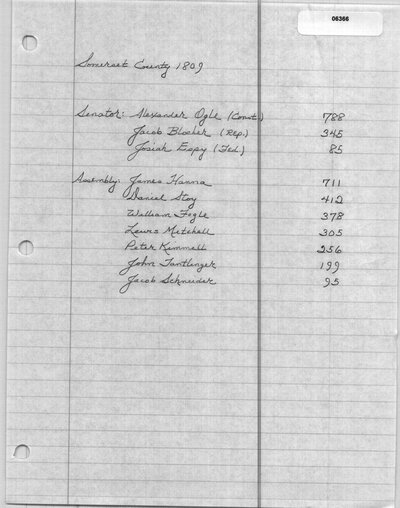 06366
Somerset County 1809
Senator: Alexander Ogle (Const.) 788
Jacob Blosher (Rep.) 345
Josiah Espy (Fed.) 85
Assembly: James Hanna 711
Daniel Stoy 412
William Fogle 378
Lewis Mitchell 305
Peter Kimmell 256
John Tantlinger 199
Jacob Schneider 95